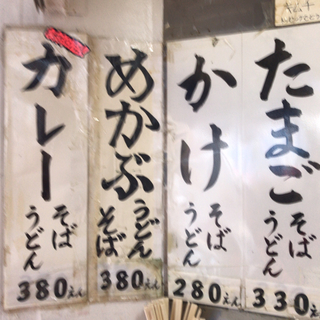 たまご
そば
うどん
330えん
かけ
そば
うどん
280えん
めかぶ
うどん
そば
380えん
カレー
そば
うどん
380えん
キムチ